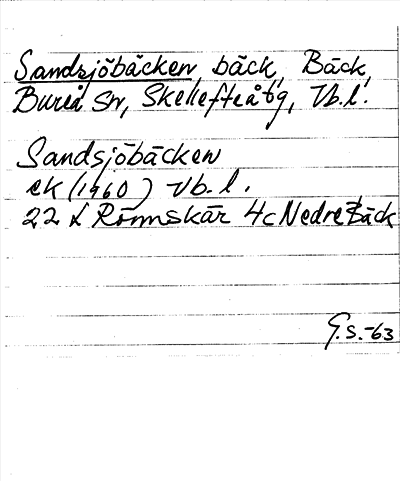 Sandsjöbäcken, bäck, Bäck,
Bureå sn, Skellefteå tg, Vb.l.
Sandsjöbäcken
ek (1960) Vb.l.
22 L Rönnskär 4c Nedre Bäck
G.S.-63